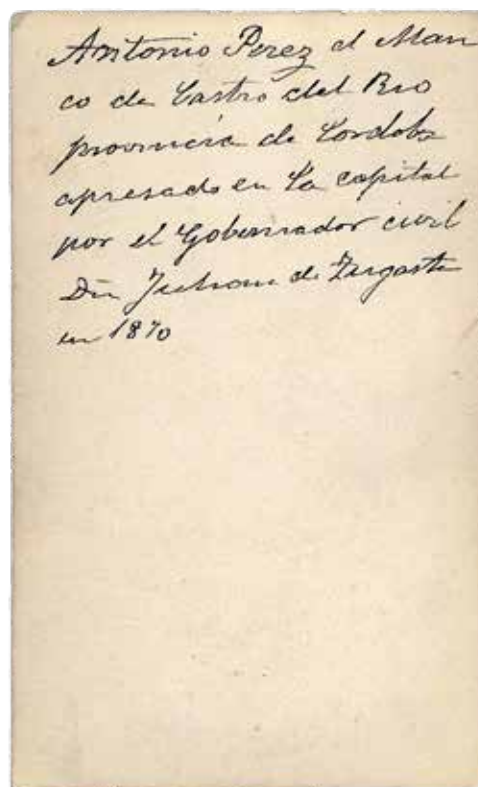 Antonio Perez el Man
co de Castro del Rio
provincia de Cordoba
apresado en la capital
por el Gobernador civil
Dn Julian de Zugasti
en 1870